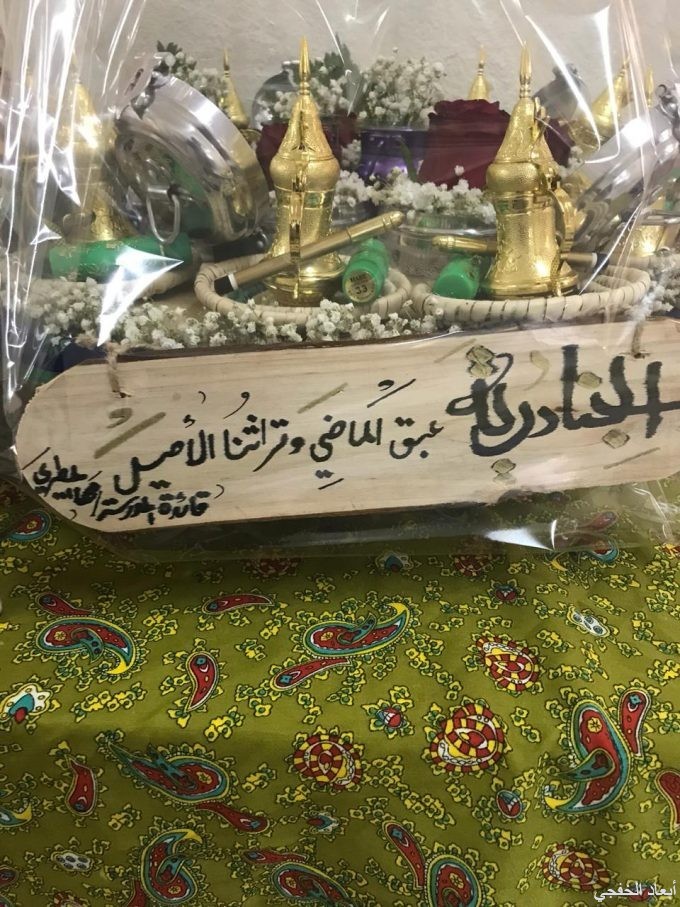 الجنادرية عبق الماضي وتراثنا الأصيل
قائدة المدرسة مها المطيري
أبعاد الخفجي